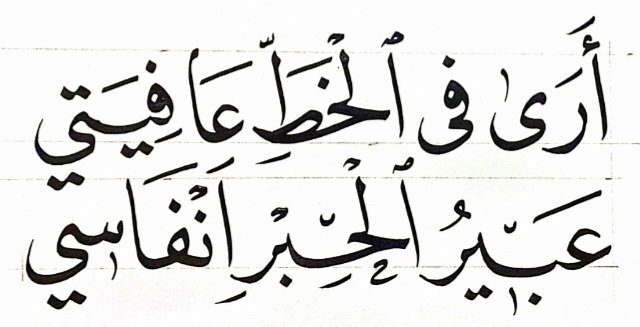 أَرَى فِي ٱلْخَطِّ عَافِيَتِي
عَبِيرُ ٱلْحِبْرِ اَنْفَاسِي